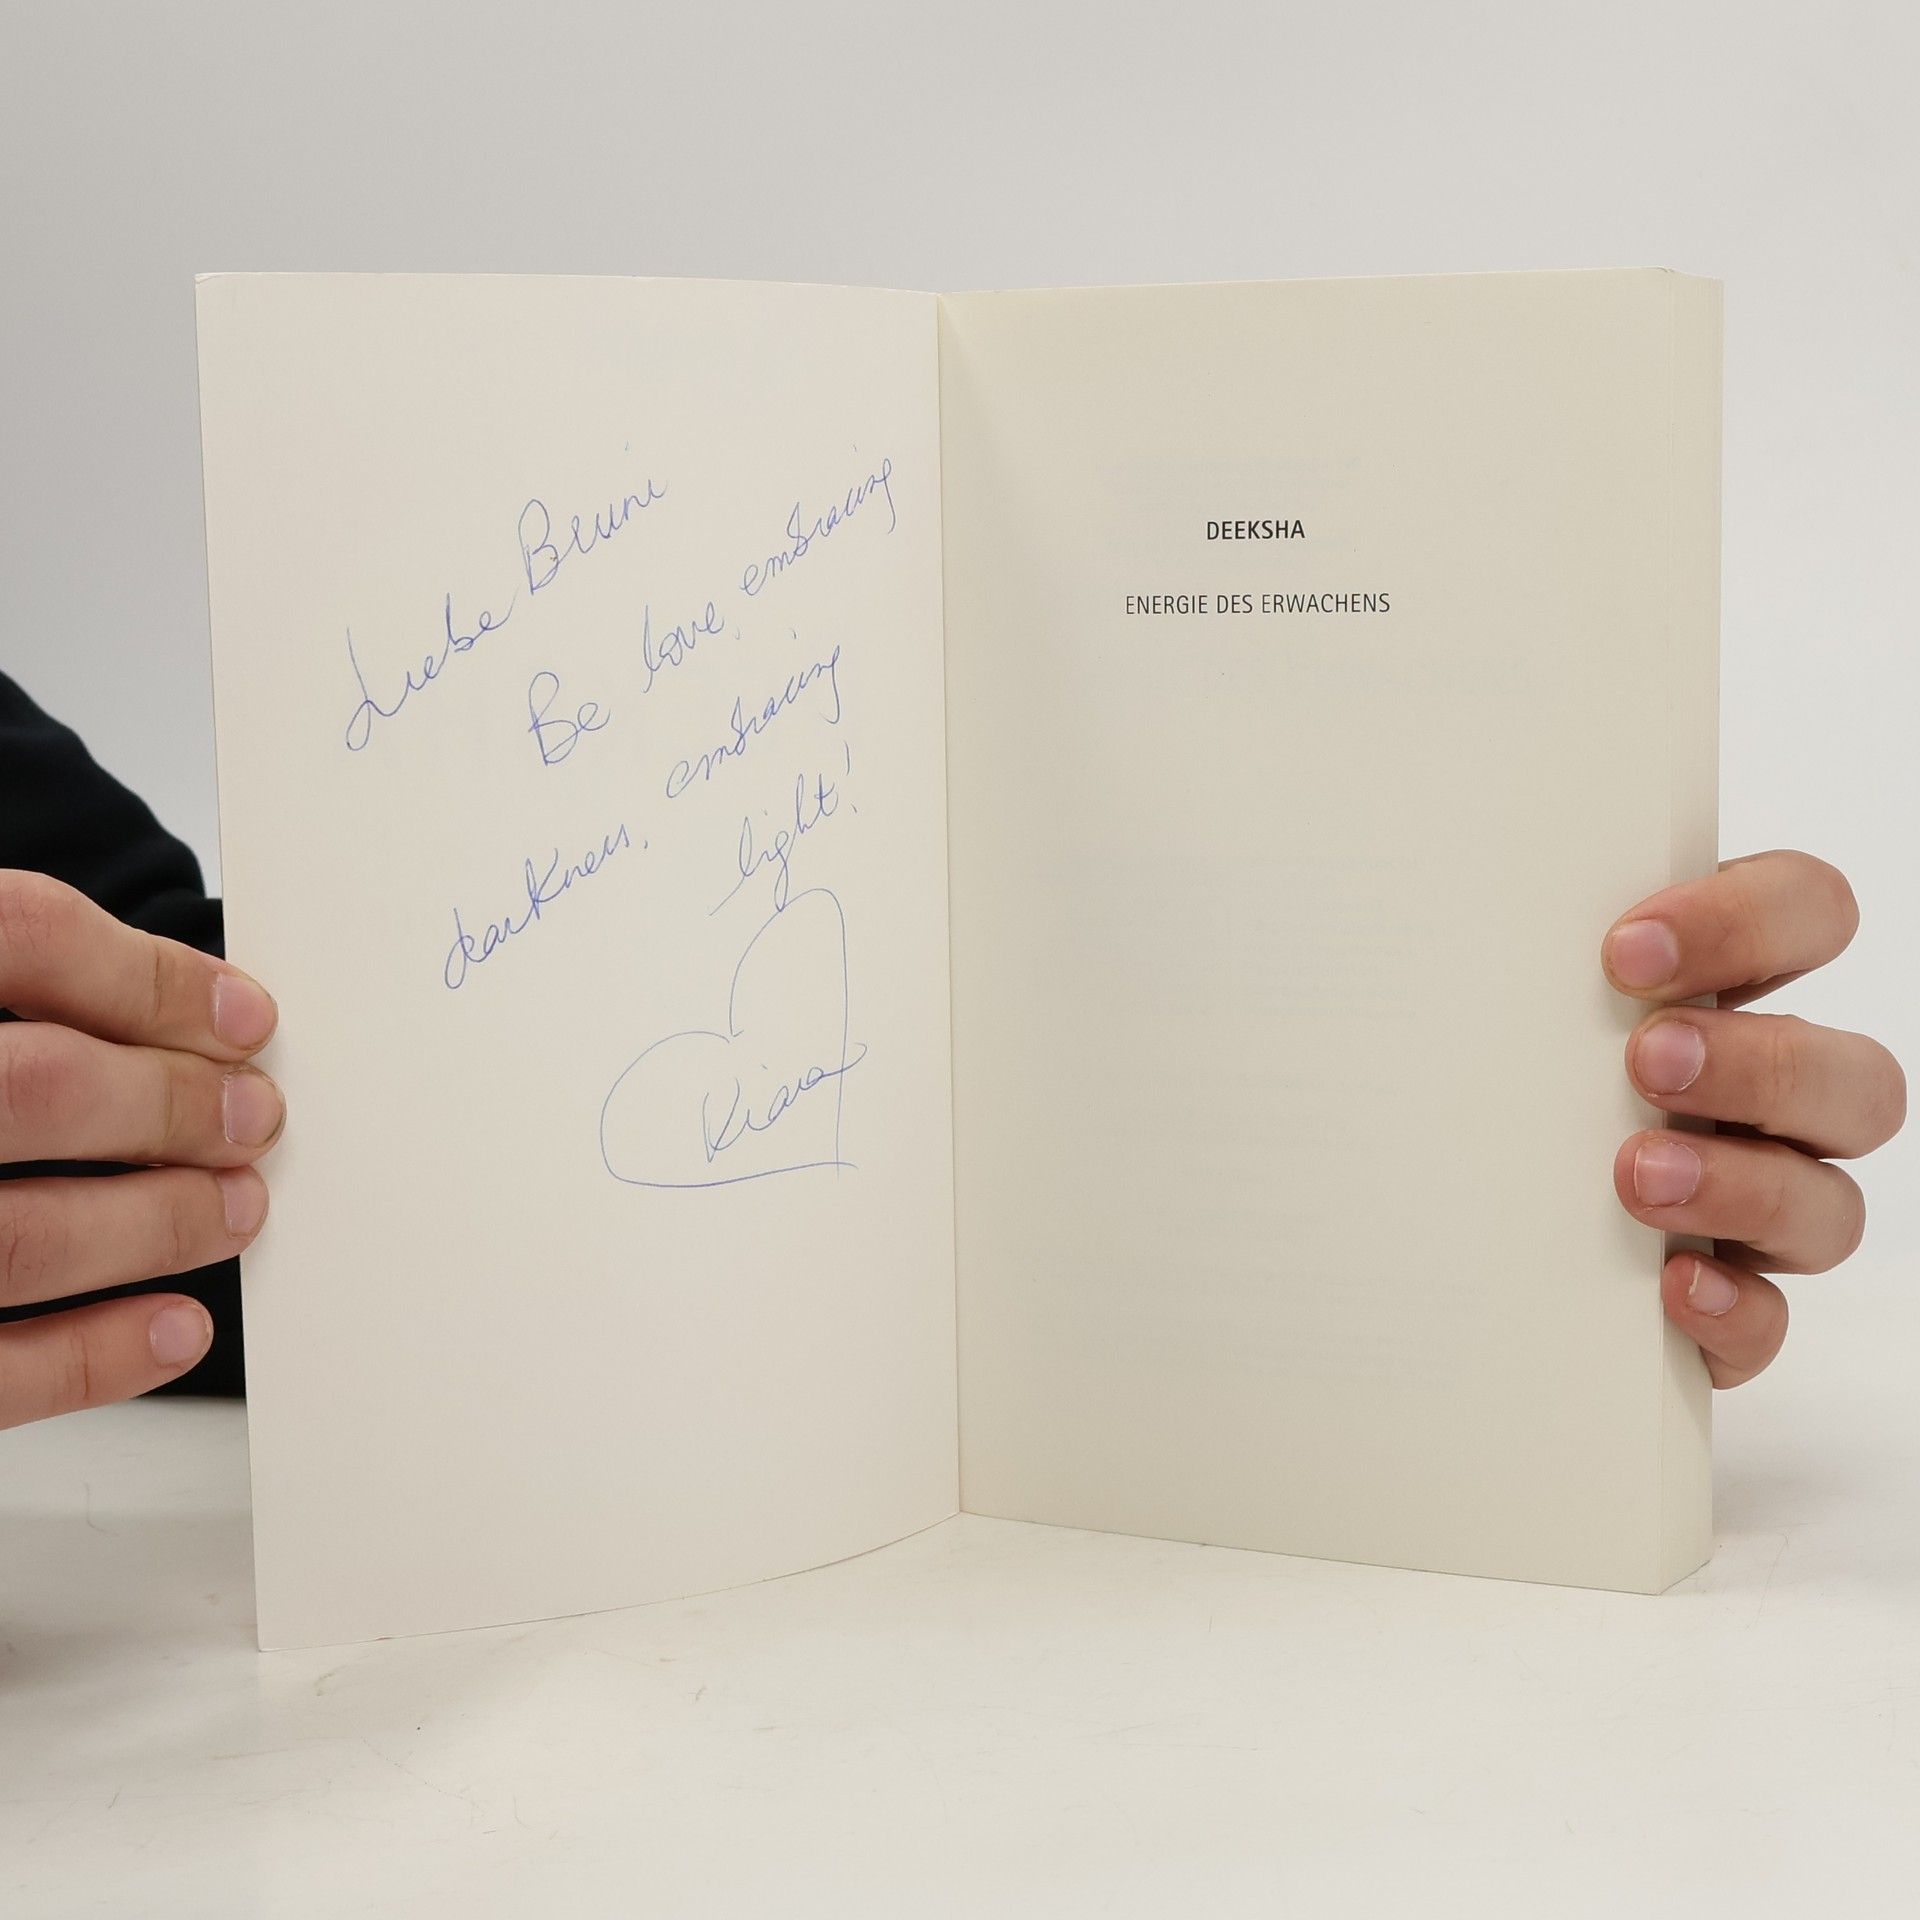 Liebe Bruni
Be love, embracing
darkness, embracing
light!
Kiara
DEEKSHA
ENERGIE DES ERWACHENS